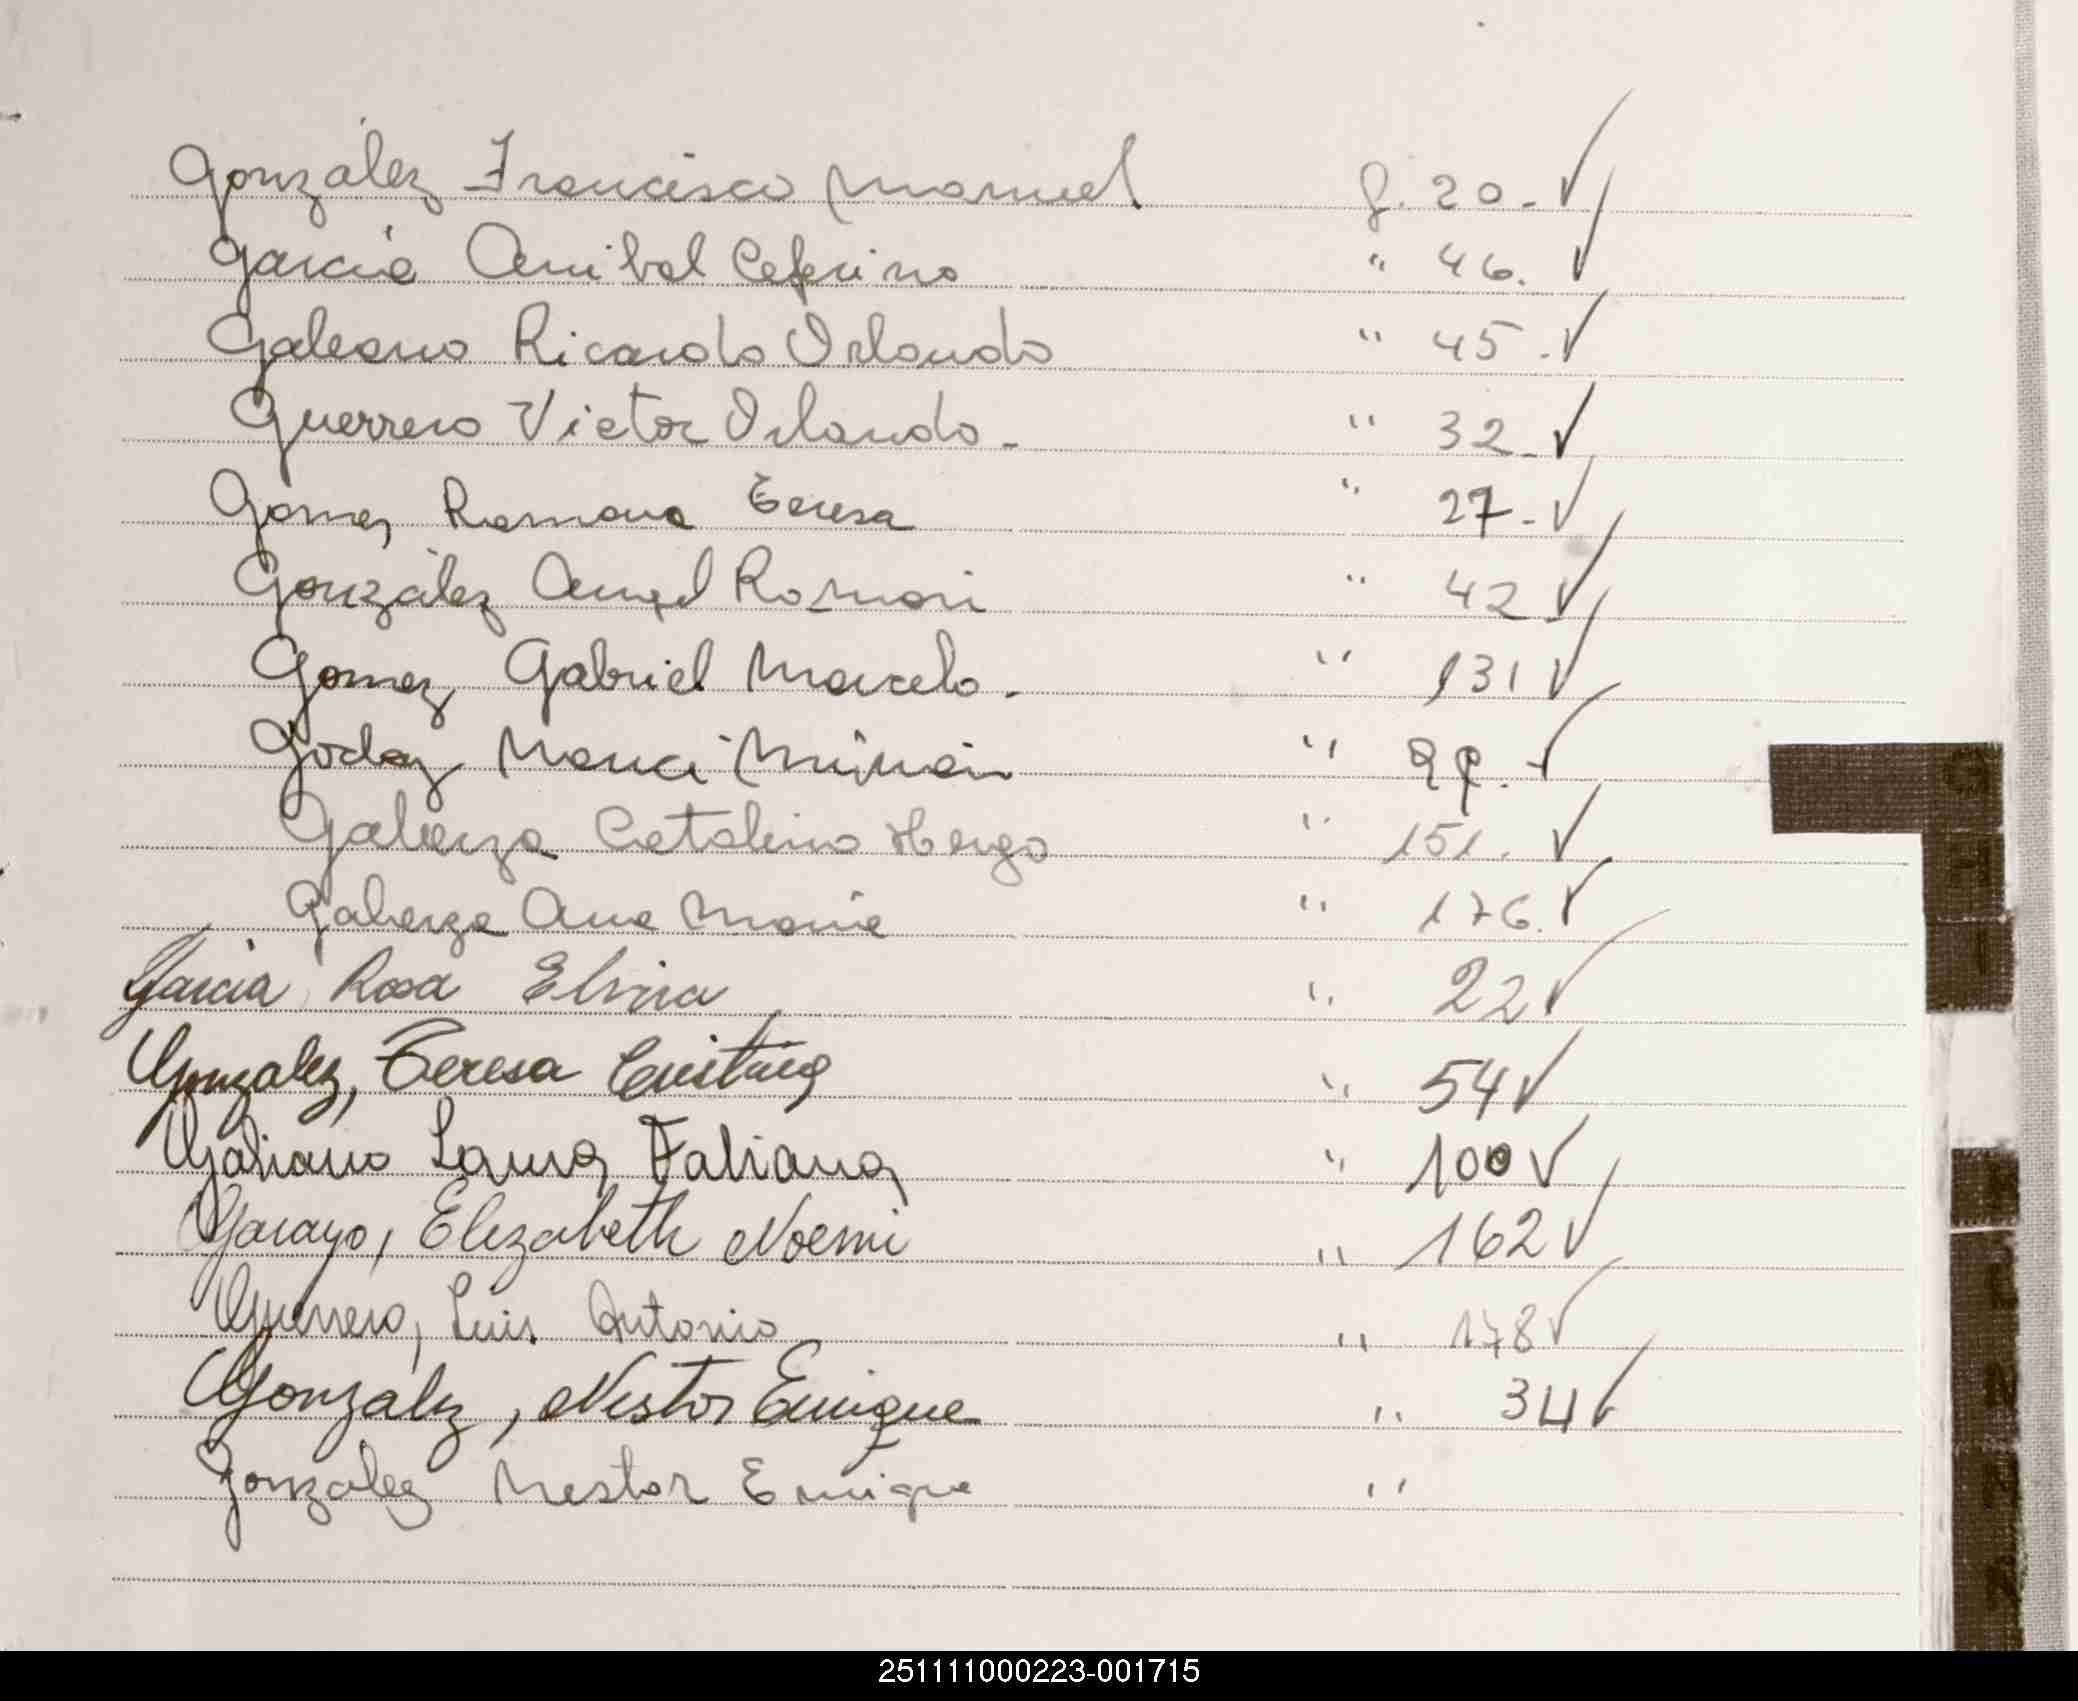 González Francisco Manuel f. 20.- ✓
García Anibal Ceferino " 46. ✓
Galeano Ricardo Orlando " 45.- ✓
Guerrero Victor Orlando - " 32- ✓
Gomez Ramona Teresa " 27- ✓
González Angel Román " 42 ✓
Gomez Gabriel Marcelo - " 131 ✓
Godoy ✓
Galarza Catalino Hugo " 151. ✓
Galarza Ana Maria " 176. ✓
Garcia Rosa Elvira " 22 ✓
Gonzalez, Teresa Cristina " 54 ✓
Galiano Laura Fabiana " 100 ✓
Garayo, Elizabeth Noemi " 162 ✓
Guerrero, Luis Antonio " 178 ✓
Gonzalez, Nestor Enrique " 34 ✓
Gonzalez Nestor Enrique "
G
H
I
251111000223-001715